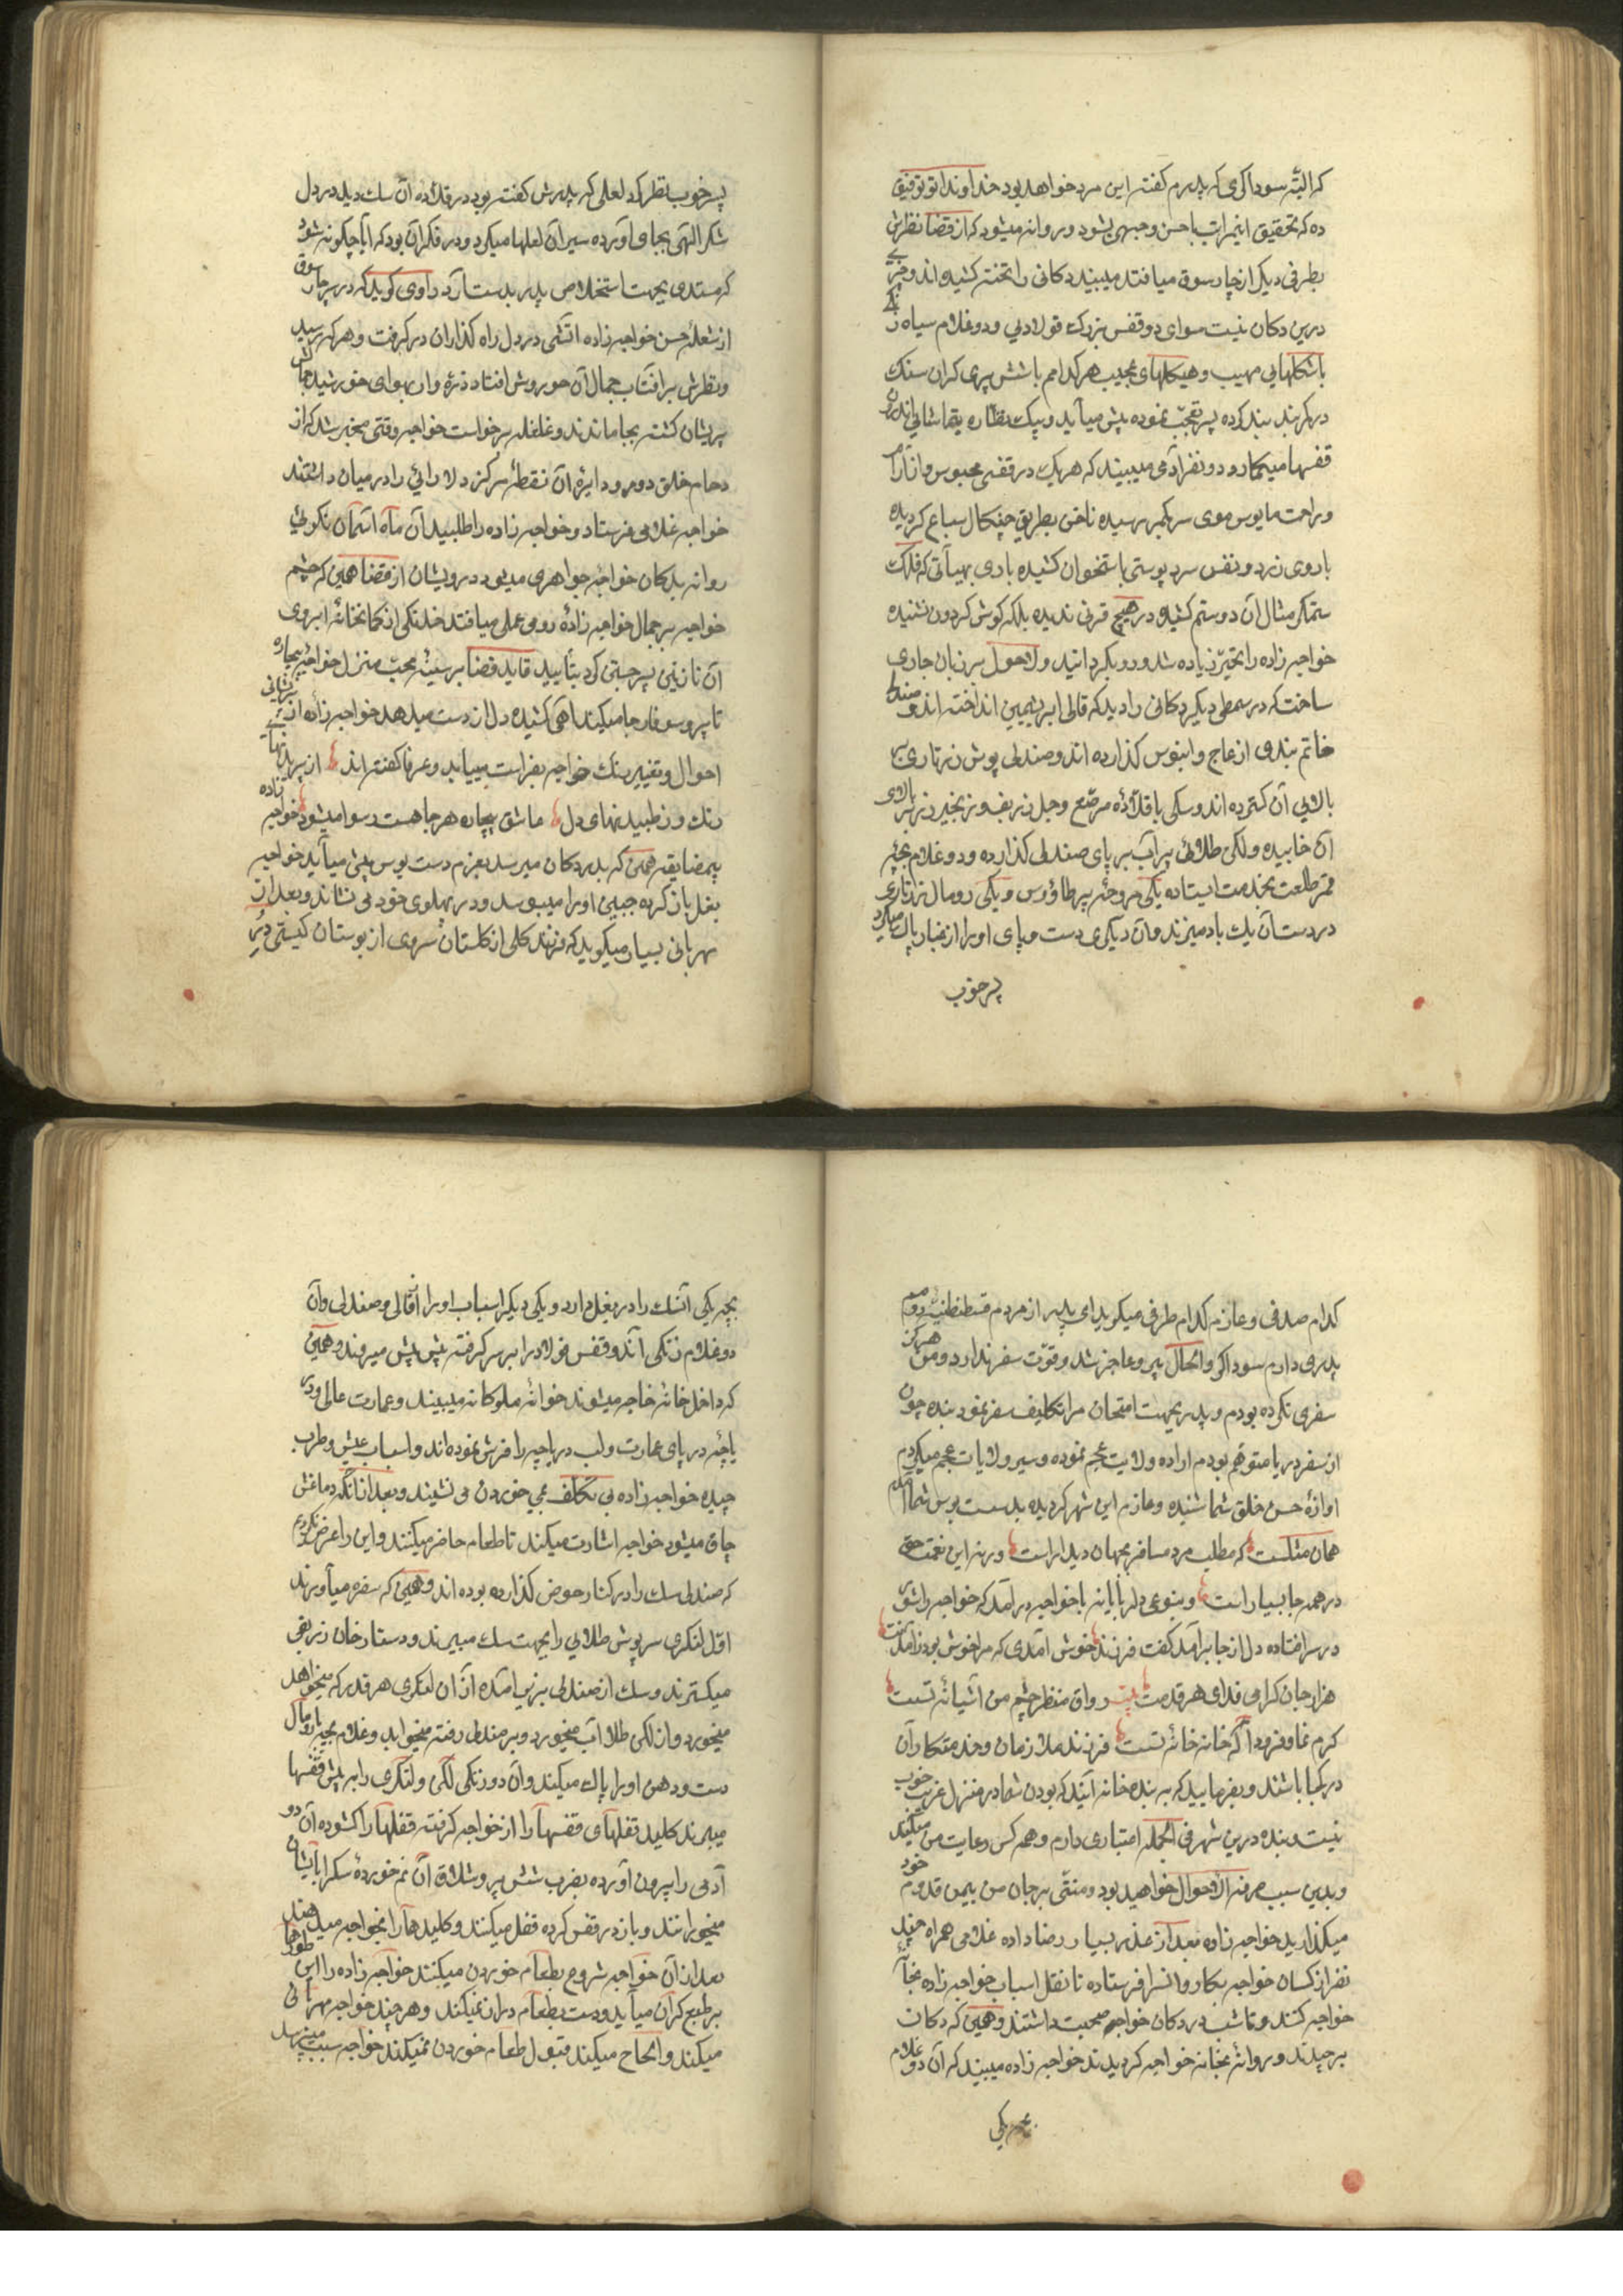 که البته سوداکری که پدرم کفته این مرد خواهد بود خداوندا تو توفیق
ده که تحقیق اینمراتب باحسن وجهی بشود و روانه میشود که از قضا نظرش
بطرفی دیکر از چار سوق میافتد میبیند دکانی را تخته کشیده اند و چیزی
درین دکان نیست سوای دو قفس بزرک فولادی و دو غلام سیاه زنکی
باشکلهایی مهیب و هیکلهای عجیب هر کدامم باشش پری کران سنک
در کمربند بند کرده پسر تعجب نموده پیش میآید و پیک نظاره بتماشای اندرون
قفسها میکمارد دو نفر آدمی میبیند که هریک در قفسی محبوس و از آرام
و راحت مایوس موی سر بکمر رسیده ناخن بطریق چنکال سباع کردیده
باروی زرد و نفس سرد پوستی باستخوان کشیده باری بهیأتی که فلک
ستمکر مثال آن دو ستم کشیده در هیچ قرنی ندیده بلکه کوش کردون نشنیده
خواجه زاده را تحیر زیاده شد و رو بکردانید و لاحول بر زبان جاری
ساخت که در سمطی دیکر دکانی را دید که قالی ابریشمین انداخته اند و صندلی
خاتم بندی از عاج و ابنوس کذارده اند و صندلی پوش زرتاری بر
بالای آن کسترده اند و سکی با قلاده مرصع و جل زربفت و زنجیر زر بر بالای
آن خابیده و لکن طلائی پر آب بر پای صندلی کذارده و دو غلام بچه
قمر طلعت بخدمت ایستاده یکی مروحه پر طاوس و یکی رومال زرتاری
در دست آن یک باد میزند و آن دیکری دست و پای او را از غبار پاک میکرد
پسر خوب
پسر خوب نظر کرد لعلی که پدرش کفته بود در قلاده آن سک دید در دل
شکر الهی بجای آورده سیر آن لعلها میکرد و در فکر آن بود که آیا چکونه شود
که مستدی بجهت استخلاص پدر بدست آرد راوی کوید که در سر چار سوق
از شعله حسن خواجه زاده اتشی در دل راه کذاران در کرفت و هر که رسید
و نظرش بر افتاب جمال آن حور وش افتاد ذره وار بهوای خورشید جمالش
پریشان کشته بجا ماندند و غلغله برخواست خواجه وقتی مخبر شد که از
دحام خلق دور و دایره آن نقطه مرکز دلارائی را در میان داشتند
خواجه غلامی فرستاد و خواجه زاده را طلبید آن ماه آسمان نکوئی
روانه بدکان خواجه جواهری میبود درویشان از قضا همین که چشم
خواجه بر جمال خواجه زاده رومی عملی میافتد خدنکی از کمانخانه ابروی
آن نازنین پسر جستن کرد بتأیید قاید قضا بر سینه محبت منزل خواجه بیچاره
تا پر و سوفار جا میکند آهی کشیده دل از دست میدهد خواجه زاده از پریشانی
احوال و تغییر رنک خواجه بفراست مییابد و عرفا کفته اند از پریدنهای
رنک و ز طپیدنهای دل عاشق بیچاره هر جا هست رسوا میشود خواجه زاده
بیمضایقه همین که بدر دکان میرسد بعزم دست بوس پیش میآید خواجه
بغل باز کرده جبین او را میبوسد و در پهلوی خود می نشاند و بعد از
مهربانی بسیار میکوید که فرزند کلی از کلستان سروی از بوستان کیستی در
کدام صدفی و عازم کدام طرفی میکوید ای پدر از مردم قسطنطنیه روم
پدری دارم سوداکر و الحال پیر و عاجز شد و قوت سفر ندارد و من هرکز
سفری نکرده بودم و پدر بجهت امتحان مرا تکلیف سفر نمود بنده چون
از سفر دریا متوهم بودم اراده ولایت عجم نموده و سیر ولایات عجم میکردم
اوازه حسن خلق شما شنیده و عازم این شهر کردیده بدست بوس شما آمدم
همان مثلست که مطلب مرد مسافر بجهان دیدار است ورنه این نعمت حق
در همه جا بسیار است و بنوعی دلربایانه با خواجه درآمد که خواجه را شور
در سر افتاده دل از جا برآمد کفت فرزند خوش آمدی که مرا خوش بود ز آمدنت
هزار جان کرامی فدای هر قدمت بیت رواق منظر چشم من آشیانه تست
کرم نما و فرود آ که خانه خانه تست فرزند ملازمان و خدمتکاران
در کجا باشند و بفرمایید که به بنده خانه آیند که بودن شما در منزل غربت خوب
نیست و بنده درین شهر فی الجمله اعتباری دارم و همه کس رعایت من میکنند
و بدین سبب مرفه الاحوال خواهید بود و منتی بر جان من بیمن قدوم خود
میکذارید خواجه زاده بعد از عذر بسیار رضا داده غلامی همراه چند
نفر از کسان خواجه بکاروانسرا فرستاده تا نقل اسباب خواجه زاده بخانه
خواجه کنند و تا شب در دکان خواجه صحبت داشتند و همین که دکان
برچیدند و روانه بخانه خواجه کردیدند خواجه زاده میبیند که آن دو غلام
بچه یکی
بچه یکی آنسک را در بغل دارد و یکی دیکر اسباب او را از قالی و صندلی و آن
دو غلام زنکی آندو قفس فولاد را بر سر کرفته پیش پیش میروند و همین
که داخل خانه خاجه میشوند خوانه ملوکانه میبیند و عمارت عالی و در
یاچه در پای عمارت و لب دریاچه را فرش نموده اند و اسباب عیش و طرب
چیده خواجه زاده بی تکلف بمی خوردن می نشیند و بعد از آنکه دماغش
چاق میشود خواجه اشارت میکند تا طعام حاضر میکنند و این را عرض نکردم
که صندلی سک را در کنار حوض کذارده بوده اند و همین که سفره میآورند
اول لنکری سرپوش طلائی را بجهت سک میبرند و دستار خان زربفتی
میکسترند و سک از صندلی بزیر آمده از آن لنکری هر قدر که میخواهد
میخورد و از لکن طلا آب میخورد و بر صندلی رفته میخوابد و غلام بچه با رومال
دست و دهن او را پاک میکند و آن دو زنکی لکن و لنکری را بر پیش قفسها
میبرند کلید قفلهای قفسها را از خواجه کرفته قفلها را کشوده آن دو
آدمی را بیرون آورده بضرب شش پر و شلاق آن نیم خورده سک را بآیشان
میخورانند و باز در قفس کرده قفل میکنند و کلیدها را بخواجه میدهند
بعد از آن خواجه شروع بطعام خوردن میکنند خواجه زاده را این طورها
بر طبع کران میآید و دست بطعام دراز نمیکند و هر چند خواجه مهربانی
میکند و الحاح میکند قبول طعام خوردن نمیکند خواجه سبب میپرسد